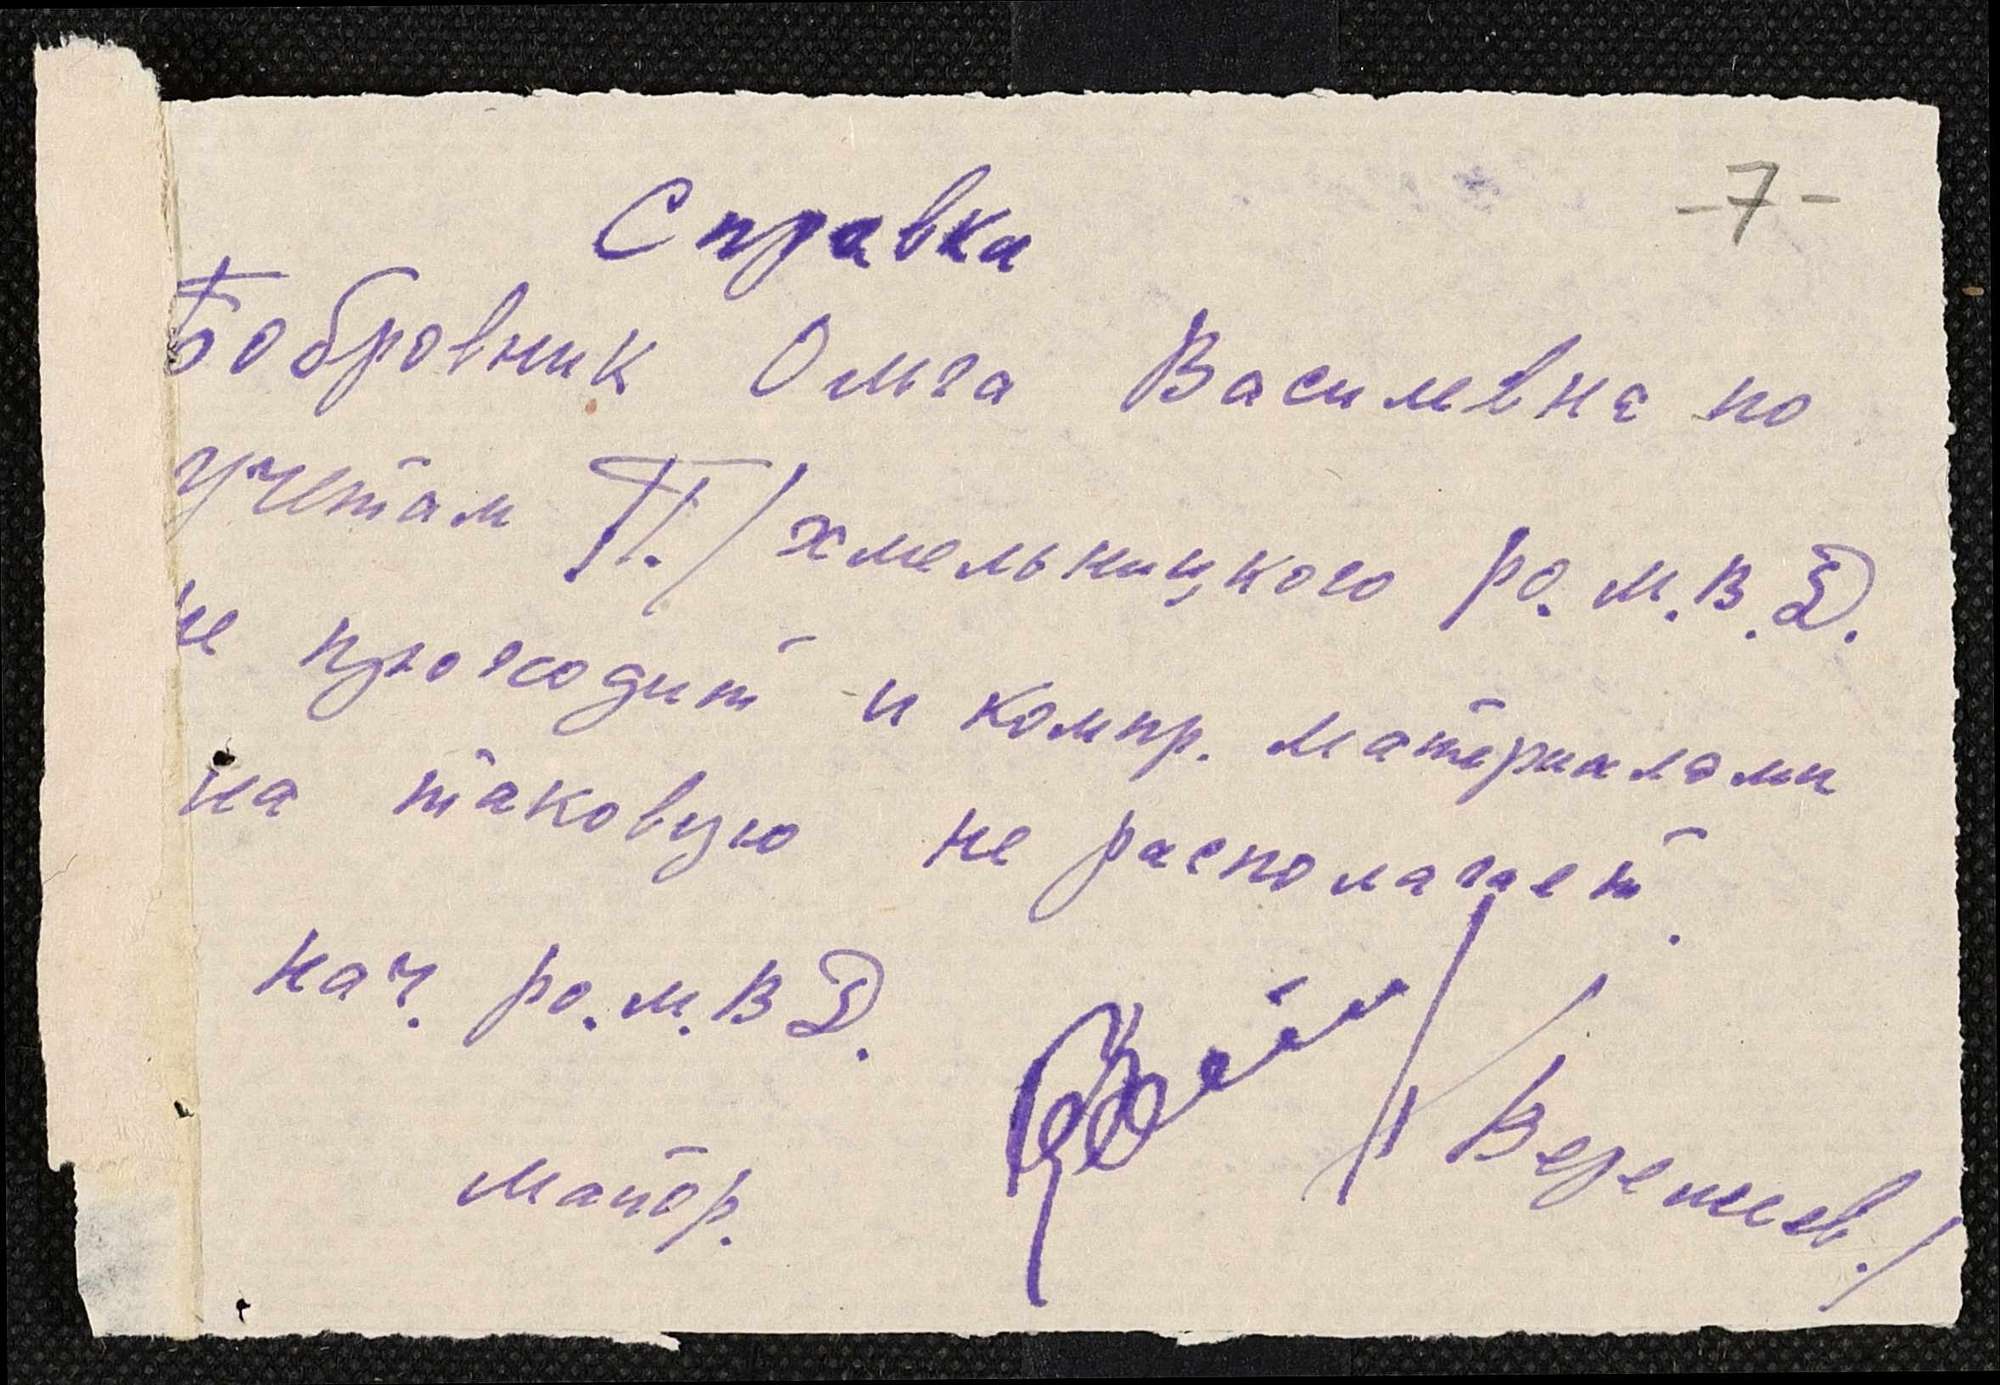 -7-
Справка
Бобровник Ольга Василевна по
учетам П./хмельницкого ро.м.в.д.
не проходит и компр. материалами
на таковую не располагает.
нач. ро.м.вд.
майор. /Верешев./